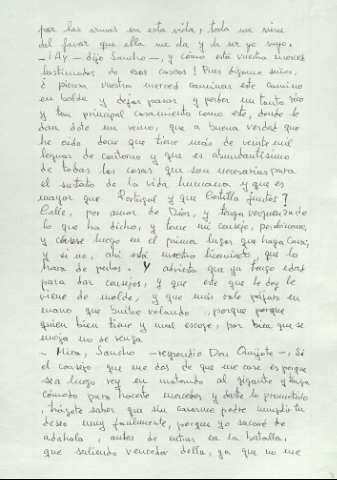 por las armas en esta vida, todo me viene
del favor que ella me da y de ser yo suyo.
- ¡Ay - dijo Sancho -, y cómo está vuestra merced
lastimado de esos cascos! Pues dígame señor,
¿ piensa vuestra merced caminar este camino
en balde y dejar pasar y perder un tanto rico
y tan principal casamiento como este, donde le
dan dote un reino, que a buena verdad que
he oído decir que tiene más de veinte mil
leguas de contorno y que es abundantísimo
de todas las cosas que son necesarias para
el sustento de la vida humana y que es
mayor que Portugal y que Castilla juntos?
Calle, por amor de Dios, y tenga vergüenza de
lo que ha dicho, y tome mi consejo, perdóneme,
y cásese luego en el primer lugar que haya cura;
y si no, ahí está nuestro licenciado que lo
hará de perlas. Y advierta que ya tengo edad
para dar consejos, y que este que le doy le
viene de molde, y que más vale pájaro en
mano que buitre volando, porque porque
quien bien tiene y mal escoge, por bien que se
enoja no se venga.
- Mira, Sancho - respondió Don Quijote -, Si
el consejo que me das de que me case es porque
sea luego rey en matando al gigante y tenga
cómodo para hacerte mercedes y darte lo prometido
, hágote saber que sin casarme podré cumplir tu
deseo muy fácilmente, porque yo sacaré de
adahala, antes de entrar en la batalla,
que saliendo vencedor della, ya que no me